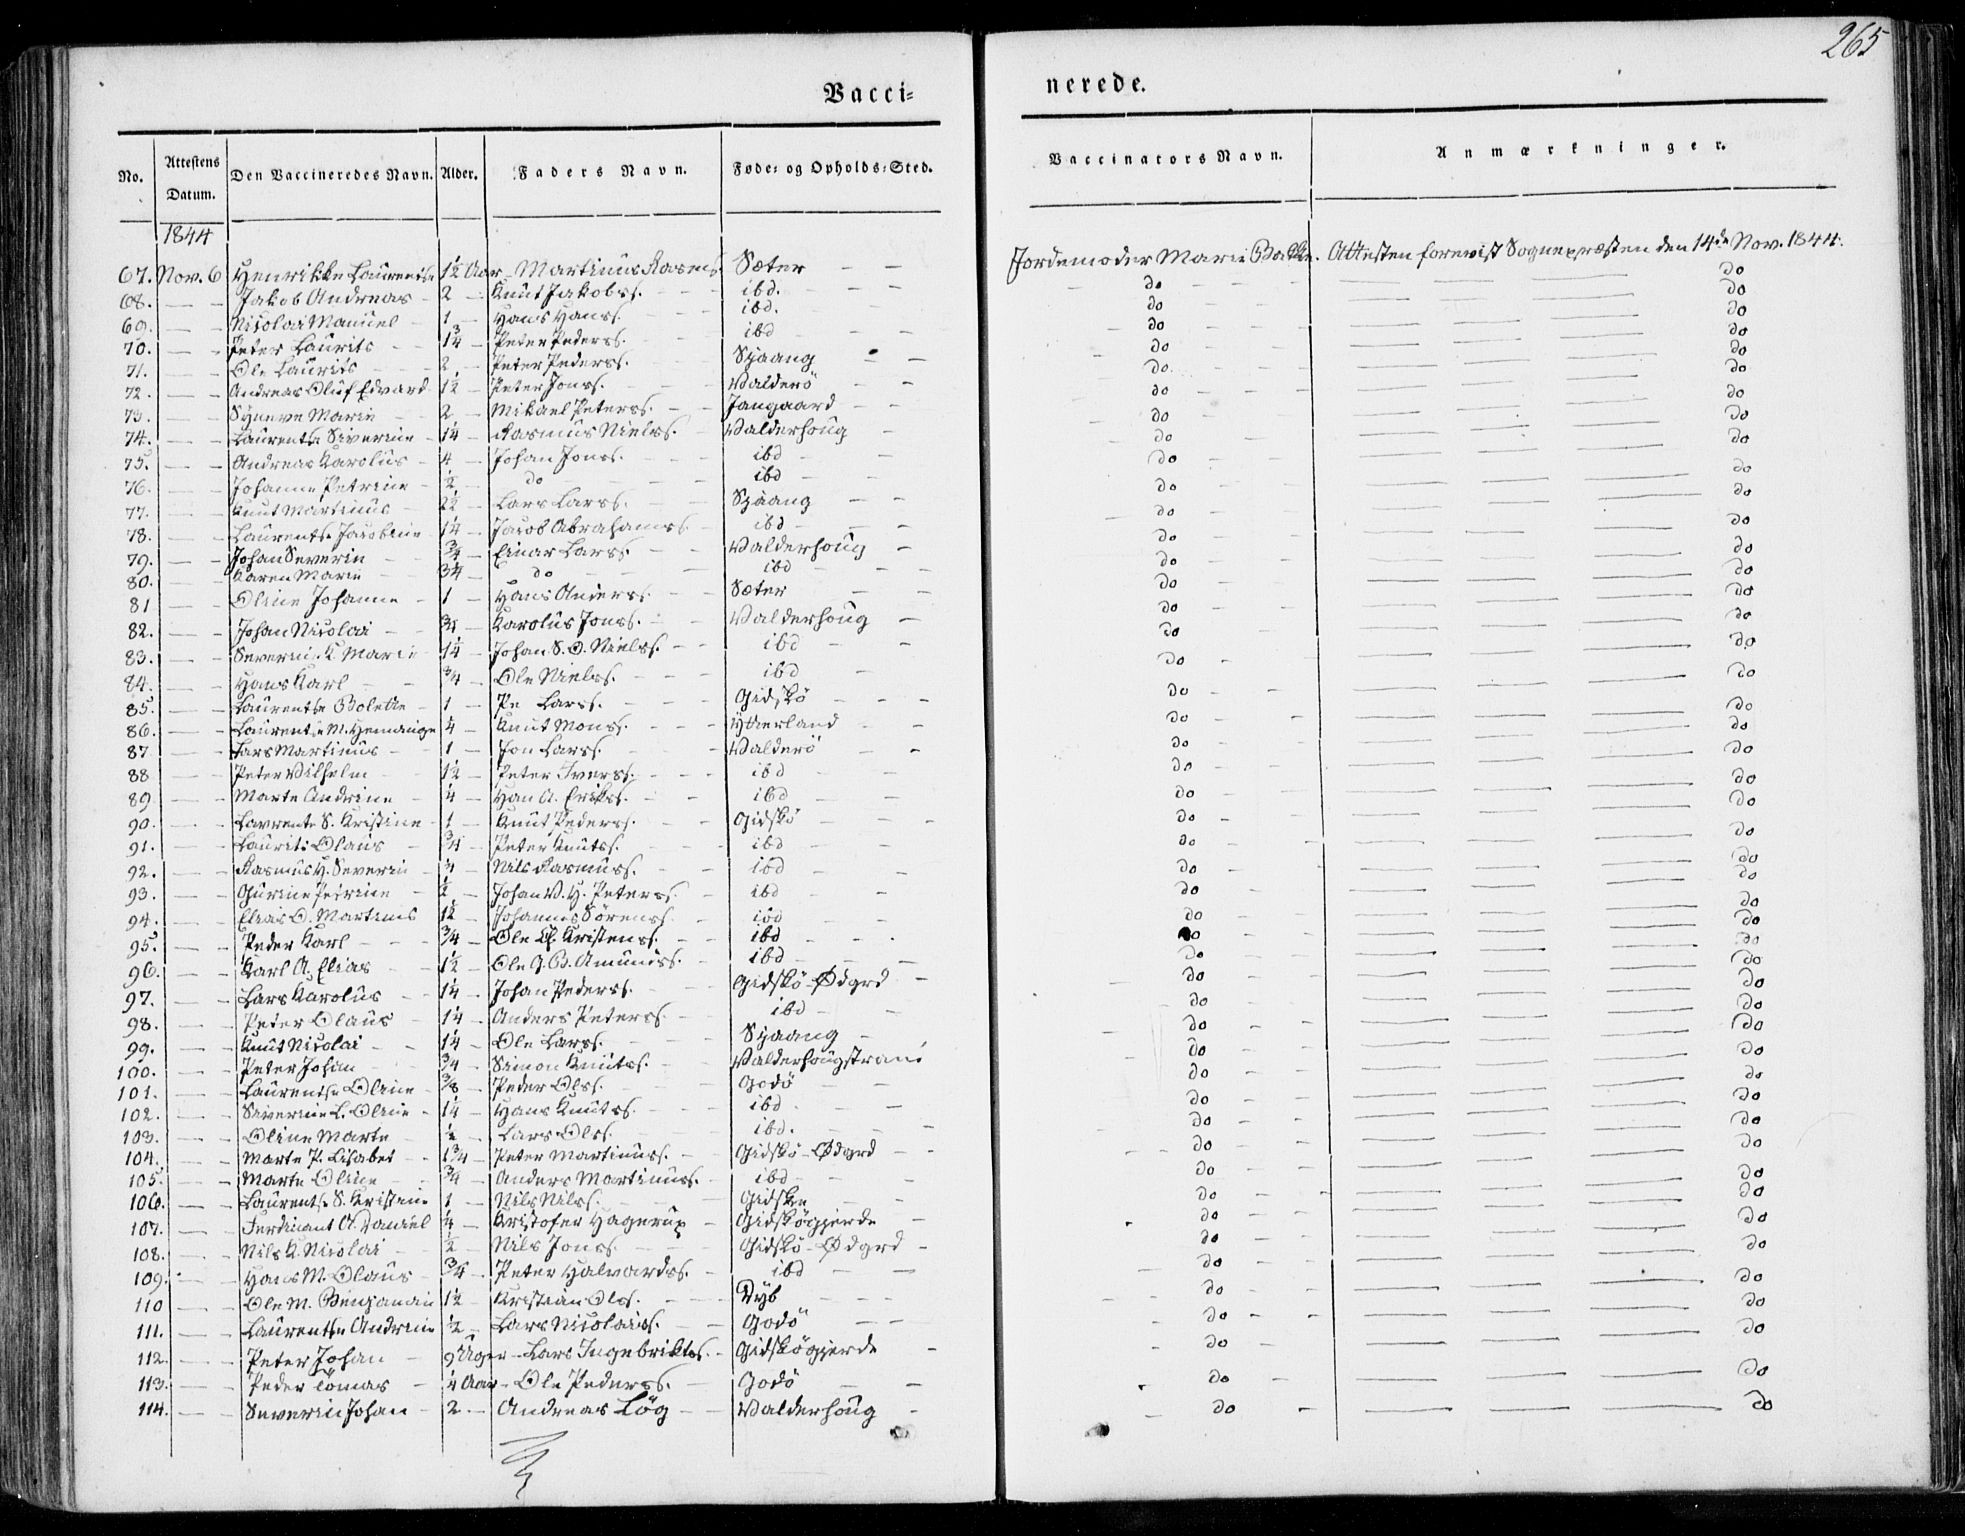 265
Vacci=
nerede.
No. Attestens Datum. Den Vaccineredes Navn. Alder. Faders Navn. Føde= og Opholds=Sted. Vaccinators Navn. Anmærkninger.
1844
67. Nov. 6 Henrikke Laurentse 1½ Aar - Martinus Rasms. Sæter Jordemoder Marie Bakke. Attesten forevist Sognepræsten den 14de Nov. 1844.
68. — Jakob Andreas 2 — Knut Jakobss. ibd. do — do
69. — Nicolai Manuel 1 — Hans Hanss. ibd. do — do
70. — Peter Laurits 1¾ Peter Pederss. ibd do — do
71. — Ole Laurits 2 — Peter Pederss. Spaang do — do
72. — Andreas Oluf Edvard 1½ Peter Jonss. Valderö do — do
73. — Syneve Marie 2 — Mikael Peterss. Jangaard do — do
74. — Laurentse Siverine 1¼ Rasmus Nielss. Valderhoug do — do
75. — Andreas Karolus 4 — Johan Jonss. ibd do — do
76. — Johanne Petrine ½ — do ibd do — do
77. — Knut Martinus 2½ Lars Larss. Spaang do — do
78. — Laurentse Jacobine 1¼ Jacob Abrahamss. ibd do — do
79. — Johan Severin ¾ Einar Larss. Valderhoug do — do
80. — Karen Marie 3¼ do ibd do — do
81 — Oline Johanne 1 — Hans Anderss. Sæter do — do
82. — Johan Nicolai ¾ Karolus Jonss. Valderhoug do — do
83. — Severin K. Marie 1¼ Johan S. O. Nielss. ibd do — do
84. — Hans Karl ¾ Ole Nielss. ibd do — do
85. — Laurentse Bolette 1 — Pe Larss. Gidskö do — do
86. — Laurentse M. ¼ Knut Monss. Ytterland do — do
87 — Lars Martinus 1 — Jon Larss. Valderö do — do
88 — Peter Vilhelm 1½ — Peter Iverss. ibd do — do
89 — Marte Andrine ¼ — Han A. Erikss. ibd do — do
90. — Lavrents S. Kristine 1 — Knut Pederss. Gidskö do — do
91. — Laurits Olaus ¾ Peter Knutss. ibd do — do
92. — Rasmus H. Severin ¼ Nils Rasmuss. ibd do — do
93. — Gurine Petrine ½ Johan V. H. Peterss. ibd do — do
94. — Elias O. Martinus 1½ Johannes Sörenss. ibd do — do
95. — Peder Karl ¾ — Ole Kristenss. ibd do — do
96. — Karl A. Elias 1½ Ole J. B. Amundss. ibd do — do
97. — Lars Karolus 1¼ Johan Pederss. Gidskö-Ødgrd do — do
98. — Peter Olaus 1¼ Anders Peterss. ibd do — do
99. — Knut Nicolai 1¼ Ole Larss. Spaang do — do
100. — Peter Johan ¾ Simon Knutss. Valderhougstrand do — do
101. — Laurentse Oline ⅜ Peder Olss. Godö do — do
102. — Siverine L. Oline 1¼ Hans Knutss. ibd. do — do
103. — Oline Marte ½ — Lars Olss. ibd. do — do
104. — Marte P. Lisabet 1¾ Peter Martinuss. Gidskö-Ødgrd do — do
105. — Marte Oline ¾ Anders Martinuss. ibd do — do
106. — Laurentse S. Kristine 1 Nils Nilss. Gidske do — do
107. — Ferdinant A. Daniel ¼ — Kristofer Hagerup Gidskögjerde do — do
108. — Nils K. Nicolai ½ — Nils Jonss. Gidskö-Ødgrd do — do
109. — Hans M. Olaus ¾ Peter Halvardss. ibd do — do
110 — Ole M. Benjamin 1½ Kristian Olss. Dyb do — do
111. — Laurentse Andrine ½ — Lars Nicolaiss. Godö do — do
112. — Peter Johan 9 Uger - Lars Ingebriktss. Gidskögjerde do — do
113. — Peder Tomas ¼ Aar - Ole Pederss. Godö do — do
114. — Severin Johan 2 — Andreas Lög Valderhoug do — do